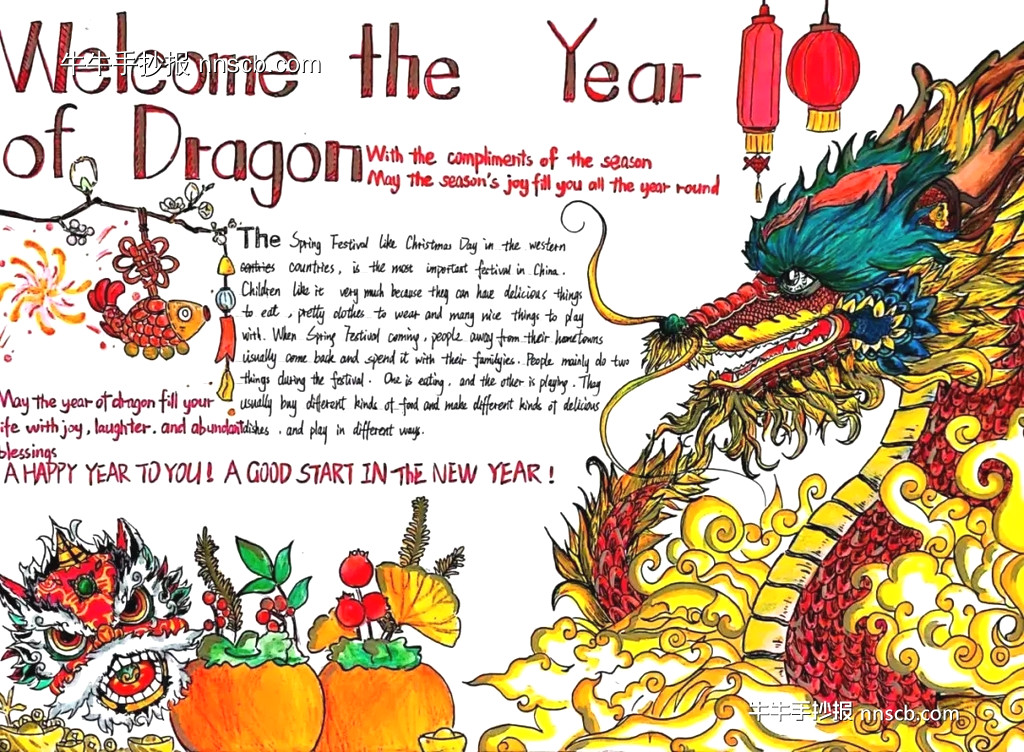 Welcome the Year
牛牛手抄报 nnscb.com
of Dragon
With the compliments of the season
May the season's joy fill you all the year round
The Spring Festival like Christmas Day in the western
countries, is the most important festival in China.
Children like it very much because they can have delicious things
to eat, pretty clothes to wear and many nice things to play
with. When Spring Festival coming, people away from their hometowns
usually come back and spend it with their familyies. People mainly do two
things during the festival. One is eating, and the other is playing. They
usually buy different kinds of food and make different kinds of delicious
dishes, and play in different ways.
May the year of dragon fill your
life with joy, laughter, and abundant
blessings
A HAPPY YEAR TO YOU! A GOOD START IN THE NEW YEAR!
牛牛手抄报 nnscb.com